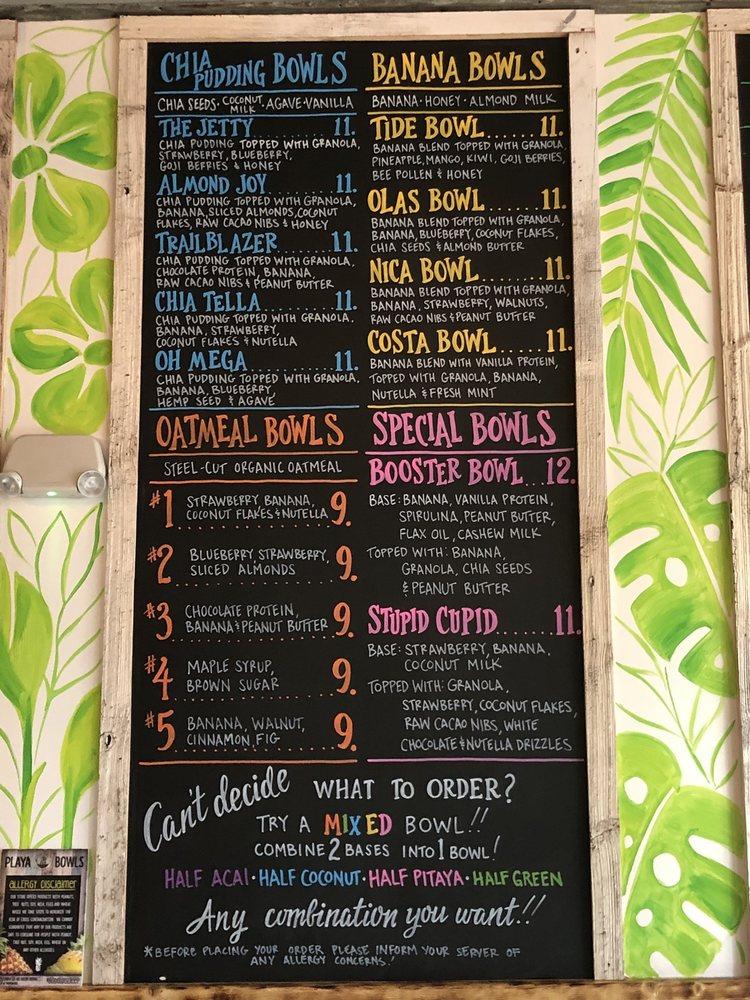 CHIA PUDDING BOWLS
CHIA SEEDS · COCONUT MILK · AGAVE · VANILLA
THE JETTY.......11.
CHIA PUDDING TOPPED WITH GRANOLA,
STRAWBERRY, BLUEBERRY,
GOJI BERRIES & HONEY
ALMOND JOY.......11.
CHIA PUDDING TOPPED WITH GRANOLA,
BANANA, SLICED ALMONDS, COCONUT
FLAKES, RAW CACAO NIBS & HONEY
TRAILBLAZER.......11.
CHIA PUDDING TOPPED WITH GRANOLA,
CHOCOLATE PROTEIN, BANANA,
RAW CACAO NIBS & PEANUT BUTTER
CHIA TELLA.......11.
CHIA PUDDING TOPPED WITH GRANOLA.
BANANA, STRAWBERRY,
COCONUT FLAKES & NUTELLA
OH MEGA.......11.
CHIA PUDDING TOPPED WITH GRANOLA,
BANANA, BLUEBERRY,
HEMP SEED & AGAVE
OATMEAL BOWLS
STEEL-CUT ORGANIC OATMEAL
#1 STRAWBERRY, BANANA,
COCONUT FLAKES & NUTELLA 9.
#2 BLUEBERRY, STRAWBERRY,
SLICED ALMONDS 9.
#3 CHOCOLATE PROTEIN,
BANANA & PEANUT BUTTER 9.
#4 MAPLE SYRUP,
BROWN SUGAR 9.
#5 BANANA, WALNUT,
CINNAMON, FIG 9.
BANANA BOWLS
BANANA · HONEY · ALMOND MILK
TIDE BOWL......11.
BANANA BLEND TOPPED WITH GRANOLA,
PINEAPPLE, MANGO, KIWI, GOJI BERRIES,
BEE POLLEN & HONEY
OLAS BOWL......11.
BANANA BLEND TOPPED WITH GRANOLA,
BANANA, BLUEBERRY, COCONUT FLAKES,
CHIA SEEDS & ALMOND BUTTER
NICA BOWL......11.
BANANA BLEND TOPPED WITH GRANOLA,
BANANA, STRAWBERRY, WALNUTS,
RAW CACAO NIBS & PEANUT BUTTER
COSTA BOWL.....11.
BANANA BLEND WITH VANILLA PROTEIN,
TOPPED WITH GRANOLA, BANANA,
NUTELLA & FRESH MINT
SPECIAL BOWLS
BOOSTER BOWL...12.
BASE: BANANA, VANILLA PROTEIN,
SPIRULINA, PEANUT BUTTER,
FLAX OIL, CASHEW MILK
TOPPED WITH: BANANA,
GRANOLA, CHIA SEEDS
& PEANUT BUTTER
STUPID CUPID......11.
BASE: STRAWBERRY, BANANA,
COCONUT MILK
TOPPED WITH: GRANOLA,
STRAWBERRY, COCONUT FLAKES,
RAW CACAO NIBS, WHITE
CHOCOLATE & NUTELLA DRIZZLES
Can't decide WHAT TO ORDER?
TRY A MIXED BOWL!!
COMBINE 2 BASES INTO 1 BOWL!
HALF ACAI · HALF COCONUT · HALF PITAYA · HALF GREEN
Any combination you want!!
*BEFORE PLACING YOUR ORDER PLEASE INFORM YOUR SERVER OF
ANY ALLERGY CONCERNS!
PLAYA BOWLS
ALLERGY DISCLAIMER